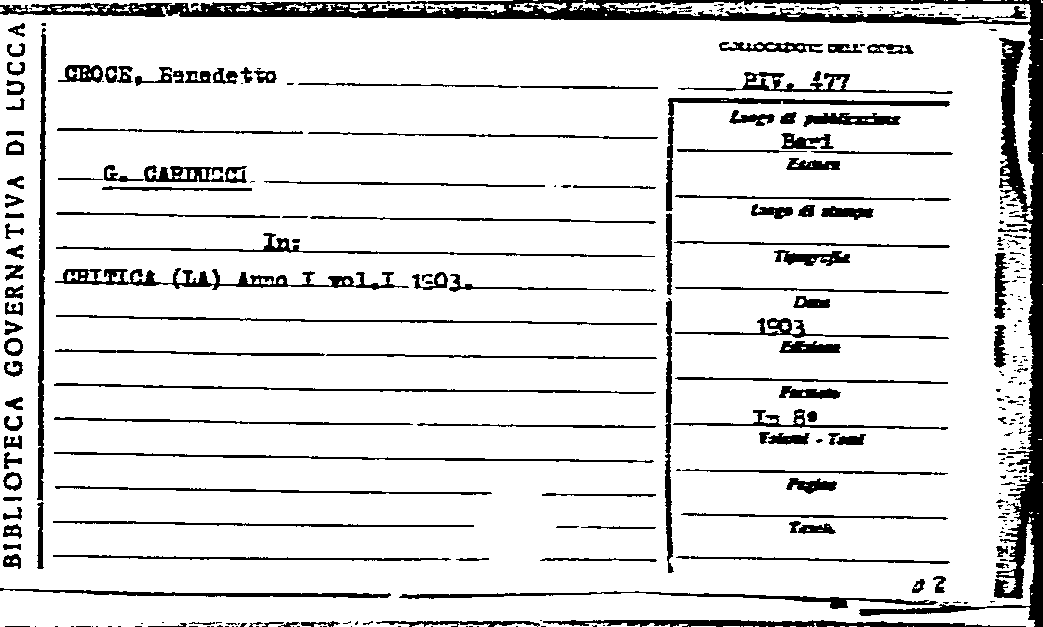 BIBLIOTECA GOVERNATIVA DI LUCCA
CROCE, Benedetto
G. CARDUCCI
In:
CRITICA (LA) Anno I vol.I 1903.
COLLOCAZIONE DELL'OPERA
RIV. 477
Luogo di pubblicazione
Bari
Editore
Luogo di stampa
Tipografia
Data
1903
Edizione
Formato
In 8º
Volumi - Tomi
Pagine
Tavole